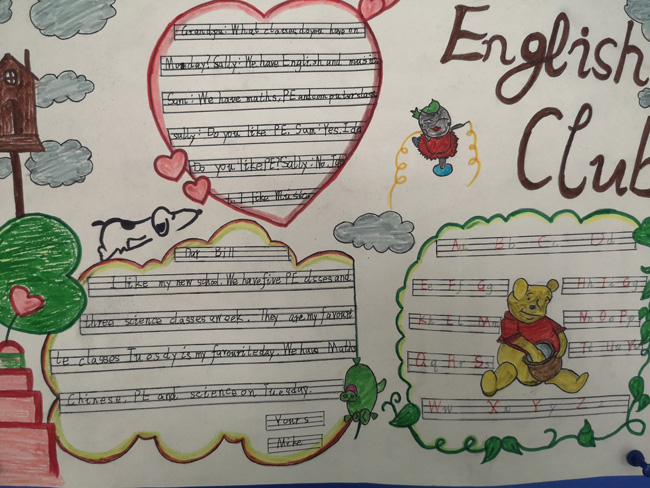 English
Club
Grandpa: What have on
Monday? Sally: We have English and music
Sam: We have maths, PE and computer class
Sally: Do you like PE. Sam: Yes. I do
Do you like PE? Sally: No. I
I like
Dear Bill
I like my new school. We have five PE and
three science classes week. They are my favourit
te classes Tuesday is my favourite day. We have Maths
Chinese. PE and science on Tuesday.
Yours
Mike
Aa Bb Cc Dd
Ee Ff Gg Hh Ii Gg
Kk Ll Mm Nn Oo Pp
Qq Rr Ss Tt Uu Vv
Ww Xx Yy Zz